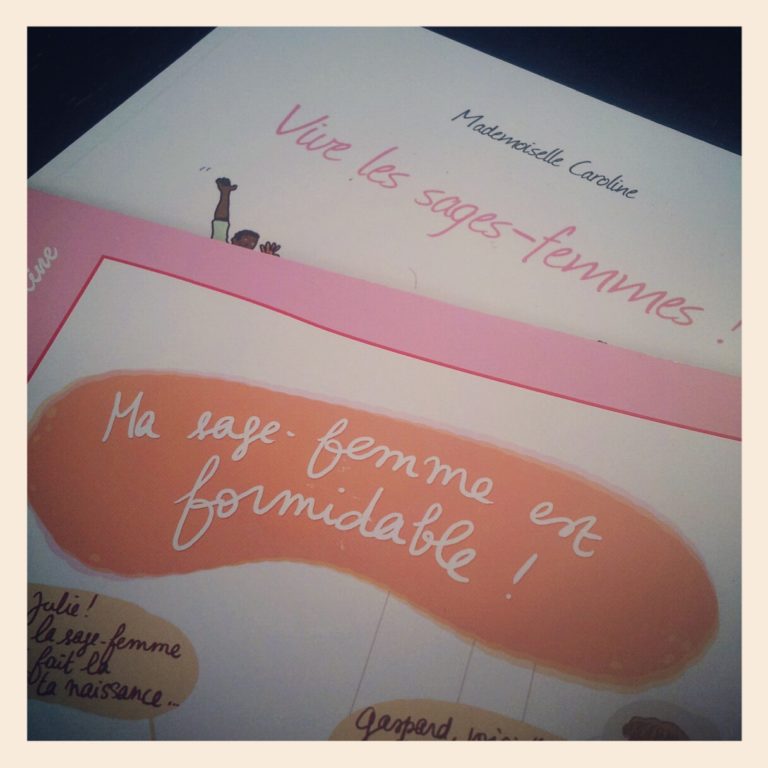 Mademoiselle Caroline
Vive les sages-femmes !
Ma sage-femme est
formidable !
Julie !
la sage-femme
fait la
ta naissance...
Gaspard,